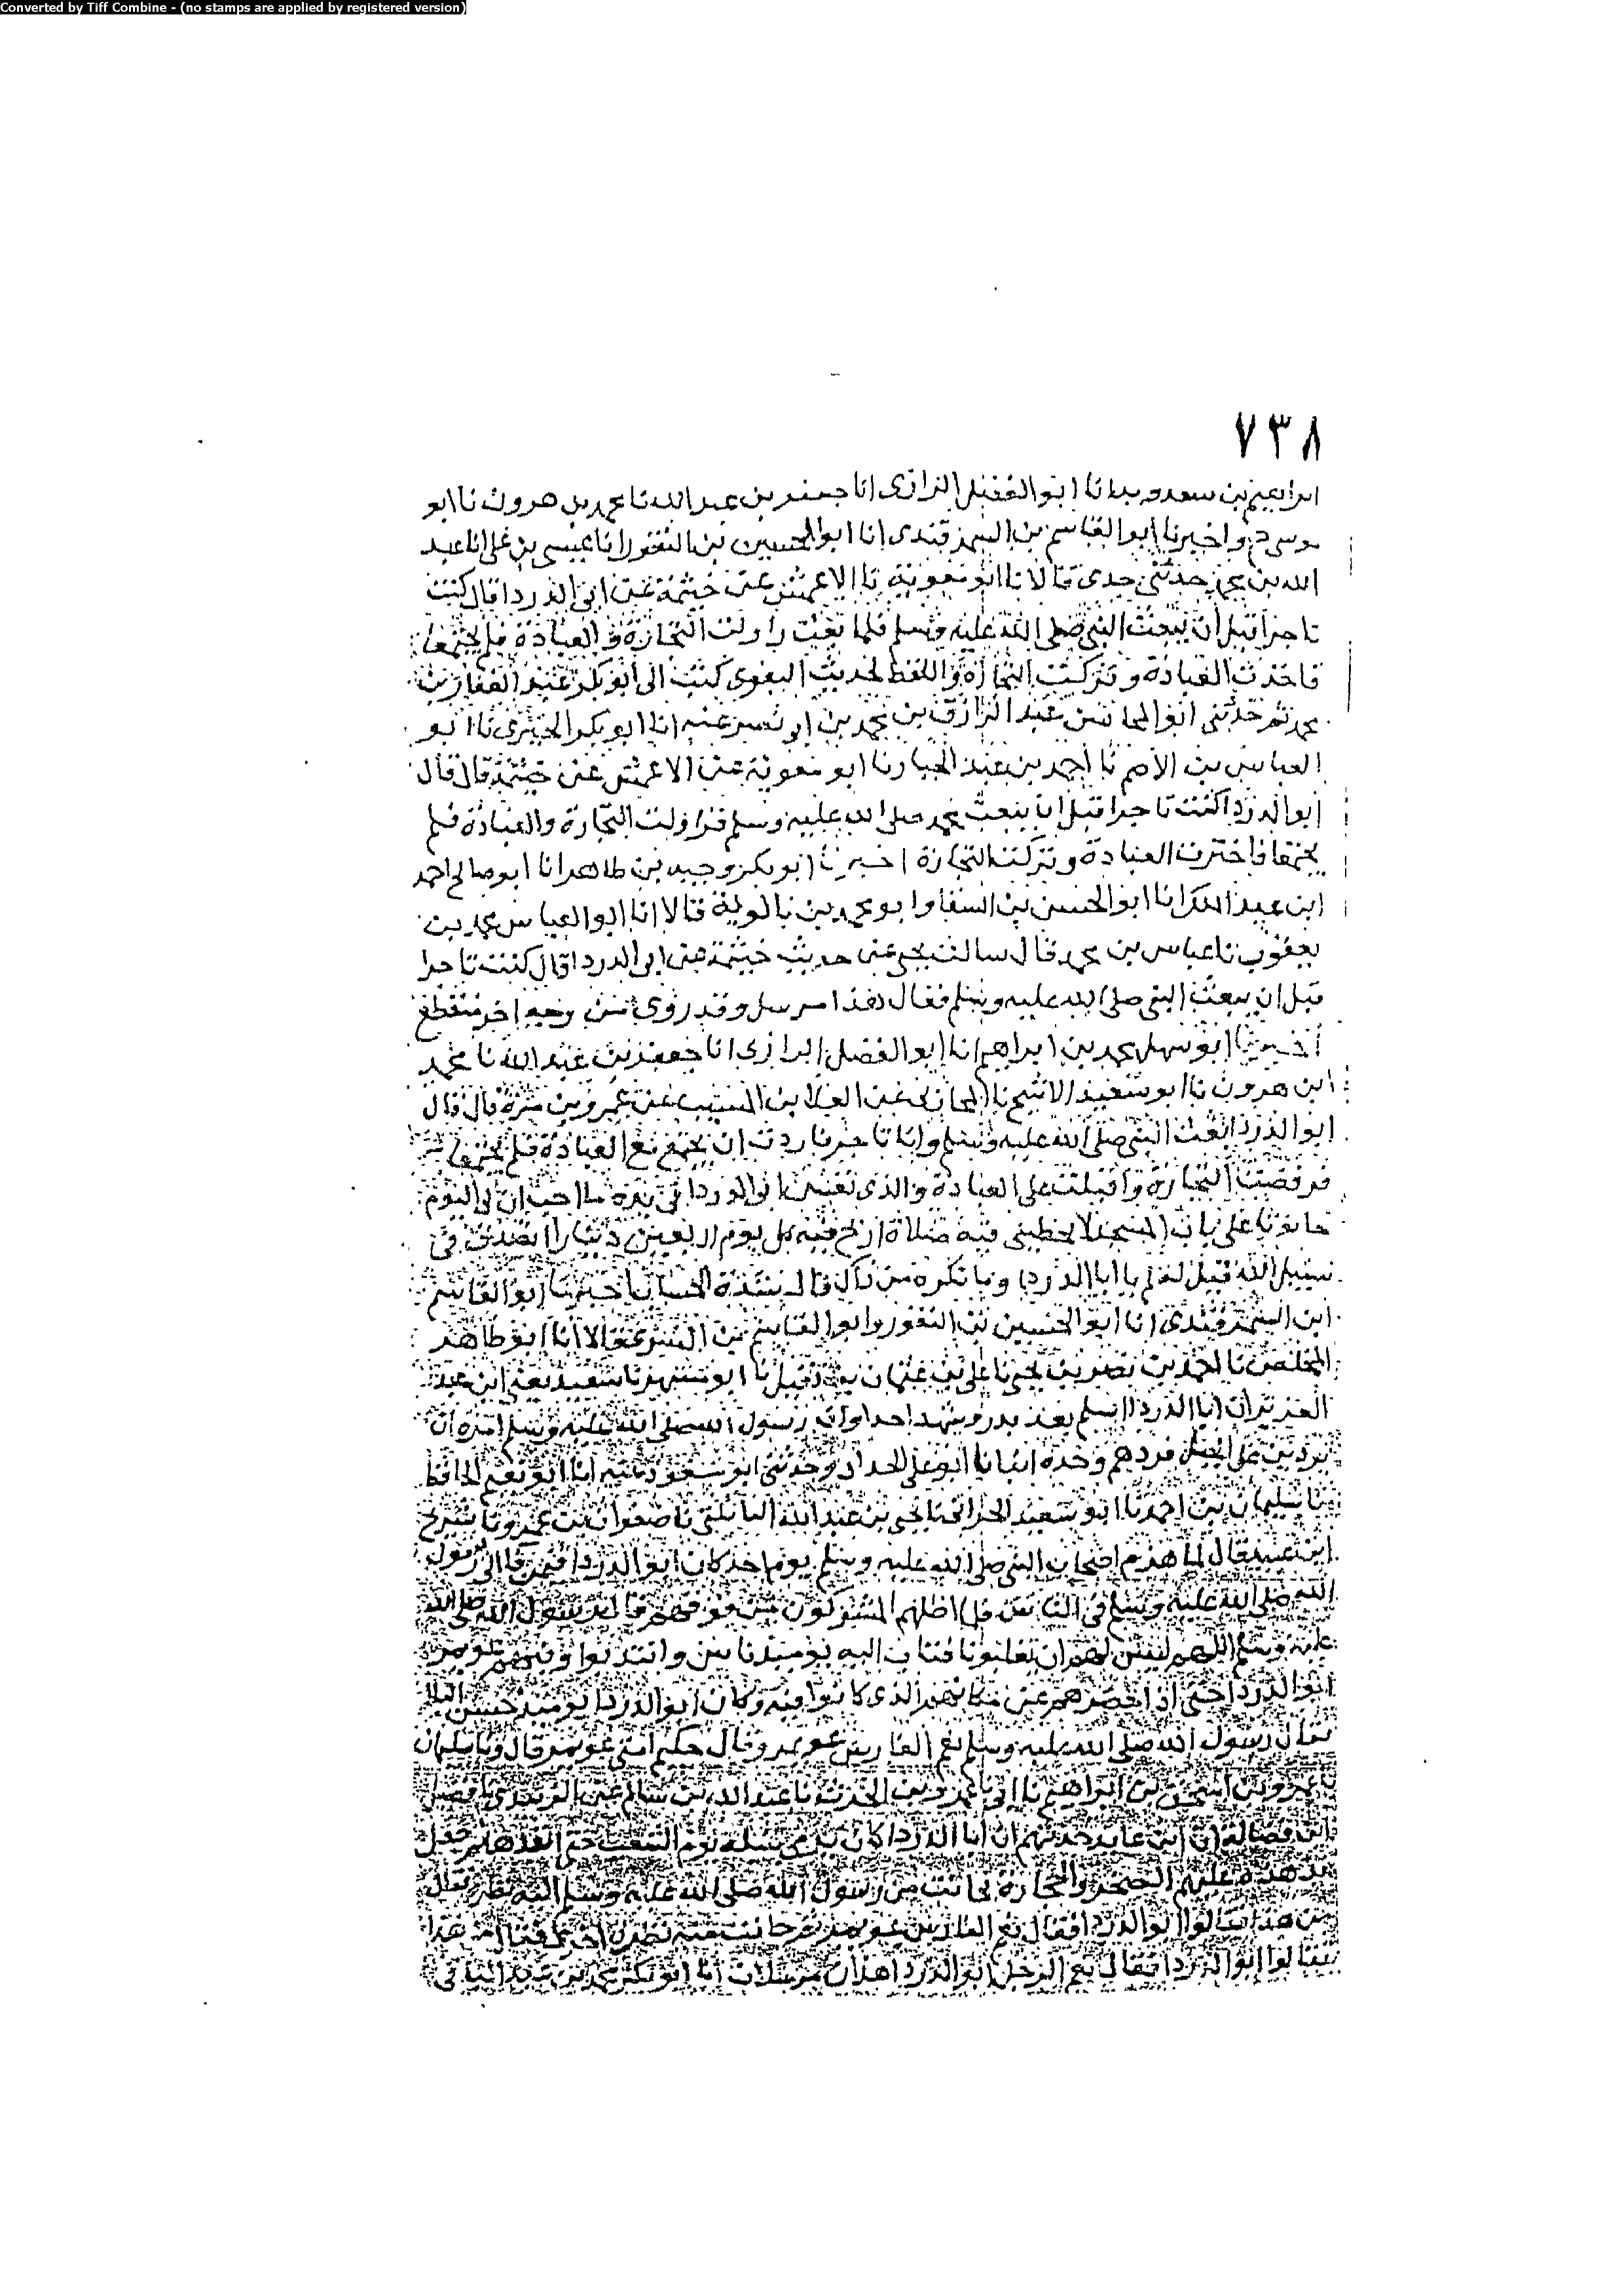 Converted by Tiff Combine - (no stamps are applied by registered version)
٧٣٨
ابراهيم بن سعدويه انا ابو الفضل الرازى انا جعفر بن عبد الله نا محمد بن هرون نا ابو
موسى ح واخبرنا ابو القاسم بن السمرقندى انا ابو الحسين بن النقور انا عيسى بن على انا عبد
الله بن محمد حدثنى جدى قالا نا ابو معوية نا الاعمش عن خيثمة عن ابى الدردا قال كنت
تاجرا قبل ان يبعث النبى صلى الله عليه وسلم فلما بعث زاولت التجارة والعبادة فلم يجتمعا
فاخذت العبادة وتركت التجارة واللفظ لحديث البغوى كتب الى ابو بكر عبد الغفار بن
محمد ثم حدثنى ابو المحاسن عبد الرازق بن محمد بن ابى نصر عنه انا ابو بكر الحيرى نا ابو
العباس بن الاصم نا احمد بن عبد الجبار نا ابو معوية عن الاعمش عن خيثمة قال قال
ابو الدردا كنت تاجرا قبل ان يبعث محمد صلى الله عليه وسلم فزاولت التجارة والعبادة فلم
يجتمعا فاخترت العبادة وتركت التجارة اخبرنا ابو بكر وجيه بن طاهر انا ابو صالح احمد
ابن عبد الملك انا ابو الحسن بن السقا وابو محمد بن بالوية قالا انا ابو العباس محمد بن
يعقوب نا عباس بن محمد قال سالت يحيى عن حديث خيثمة عن ابى الدردا قال كنت تاجرا
قبل ان يبعث النبى صلى الله عليه وسلم فقال هذا مرسل وقد روى من وجه اخر منقطع
أخبرنا ابو سهل محمد بن ابراهيم انا ابو الفضل الرازى انا جعفر بن عبد الله نا محمد
ابن هرون نا ابو سعيد الاشج نا المحاربى عن العلا بن المسيب عن عمرو بن مرة قال قال
ابو الدردا بعث النبى صلى الله عليه وسلم وانا تاجر فاردت ان يجتمع مع العبادة فلم يجتمعا
فرفضت التجارة واقبلت على العبادة والذى نفس ابى الدردا فى يده ما احب ان لى اليوم
حانوتا على باب المسجد لا يخطينى فيه صلاة اربح فيه كل يوم اربعين دينارا اتصدق فى
سبيل الله قيل له لم يا ابا الدردا وما تكره من ذاك قال شدة الحساب اخبرنا ابو القاسم
ابن السمرقندى انا ابو الحسين بن النقور وابو القاسم بن البسرى قالا انا ابو طاهر
المخلص نا احمد بن نصر بن بجير نا على بن عثمان بن نفيل نا ابو مسهر نا سعيد يعنى ابن عبد
العزيز ان ابا الدردا اسلم يعد بدر وشهد احدا وان رسول الله صلى الله عليه وسلم امره ان
يرد من على الجبل فردهم وحده انبانا ابو على الحداد وحدثنى ابو مسعود عنه انا ابو نعيم الحافظ
نا سليمان بن احمد نا ابو شعيب الحرانى نا يحيى بن عبد الله البابلتى نا صفوان بن عمرو نا شريح
ابن عبيد قال لما هزم اصحاب النبى صلى الله عليه وسلم يوم احد كان ابو الدردا فيمن فا الى رسول
الله صلى الله عليه وسلم فى الناس فلما اظلهم المشركون من فوقهم قال رسول الله صلى الله
عليه وسلم اللهم ليس لهم ان يعلونا فثاب اليه يومئذ ناس وانتدبوا وفيهم عويمر
ابو الدردا حتى اذا ادحضوهم عن مكانهم الذى كانوا فيه وكان ابو الدردا يومئذ حسن البلا
فقال رسول الله صلى الله عليه وسلم نعم الفارس عويمر وقال حكيم امتى عويمر قال ونا سليمان
نا عمرو بن اسحق بن ابراهيم نا ابى نا عمرو بن الحرث نا عبد الله بن سالم عن الزبيدى نا فضيل
ابن فضالة ان ابن عايذ حدثهم ان ابا الدردا كان يرمى بنبله يوم الشعب حتى انفدها ثم جعل
يدهده عليهم الصخر والحجارة فحانت من رسول الله صلى الله عليه وسلم اليه نظرة فقال
من هذا قالوا ابو الدردا فقال نعم الفارس عويمر ثم حانت منه نظرة اخرى فقال من هذا
فقالوا ابو الدردا فقال نعم الرجل ابو الدردا هذان مرسلان انا ابو بكر محمد بن عبد الباقى